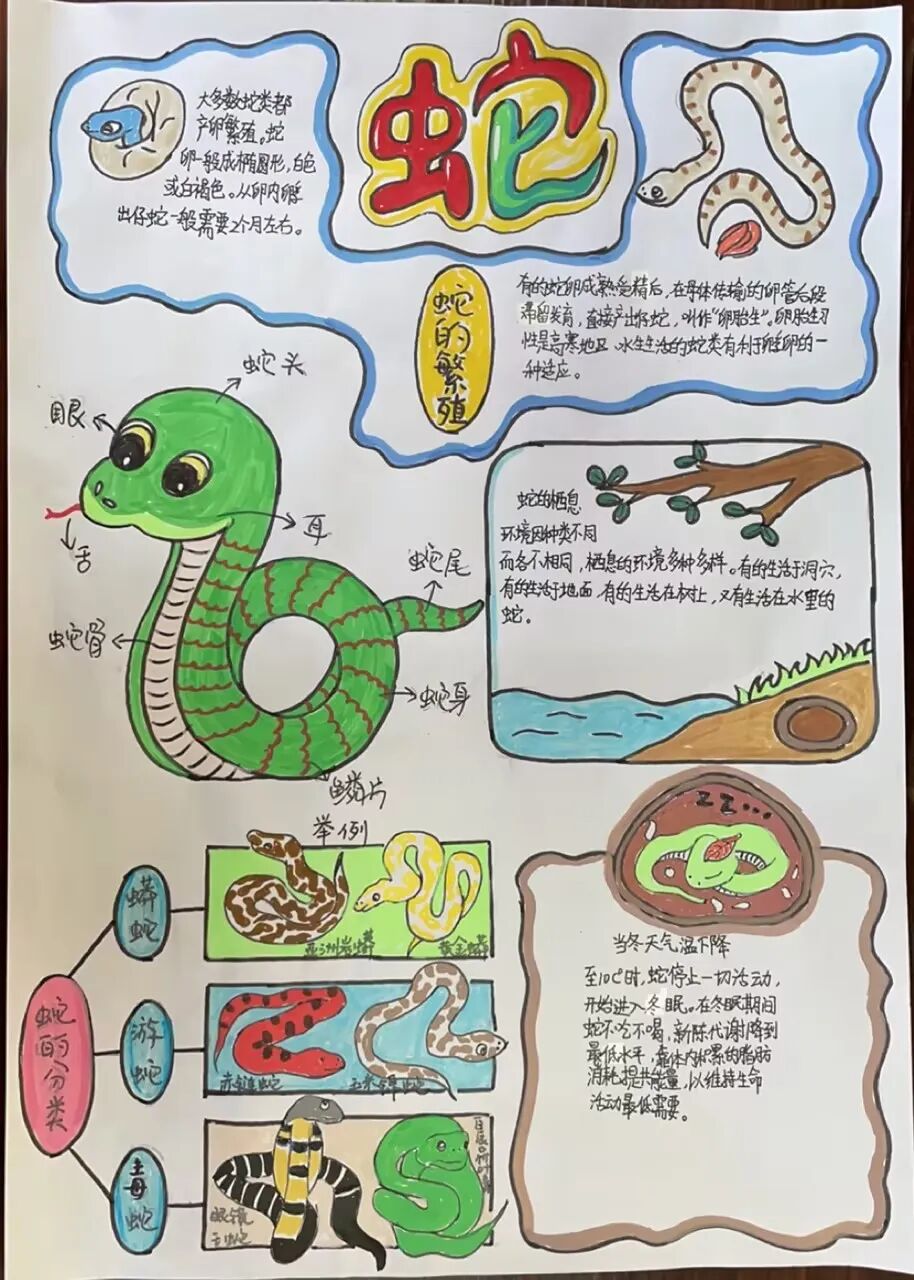 蛇
大多数蛇类都
产卵繁殖。蛇
卵一般成椭圆形，白色
或白褐色。从卵内孵
出仔蛇一般需要2个月左右。
蛇的繁殖
有的蛇卵成熟受精后，在母体传输的卵管后段
滞留发育，直接产出仔蛇，叫作"卵胎生"。卵胎生习
性是高寒地区、水生生活的蛇类有利于孵卵的一
种适应。
蛇头
眼
耳
舌
蛇尾
蛇骨
蛇身
鳞片
蛇的栖息
环境因种类不同
而各不相同，栖息的环境多种多样。有的生活于洞穴，
有的生活于地面，有的生活在树上，又有生活在水里的
蛇。
举例
蛇的分类
蟒蛇
亚洲岩蟒
黄金蟒
游蛇
赤链蛇
玉米锦蛇
毒蛇
眼镜
王蛇
zz...
当冬天气温下降
至10℃时，蛇停止一切活动，
开始进入冬眠。在冬眠期间
蛇不吃不喝，新陈代谢降到
最低水平，靠体内积累的脂肪
消耗提共能量，以维持生命
活动最低需要。